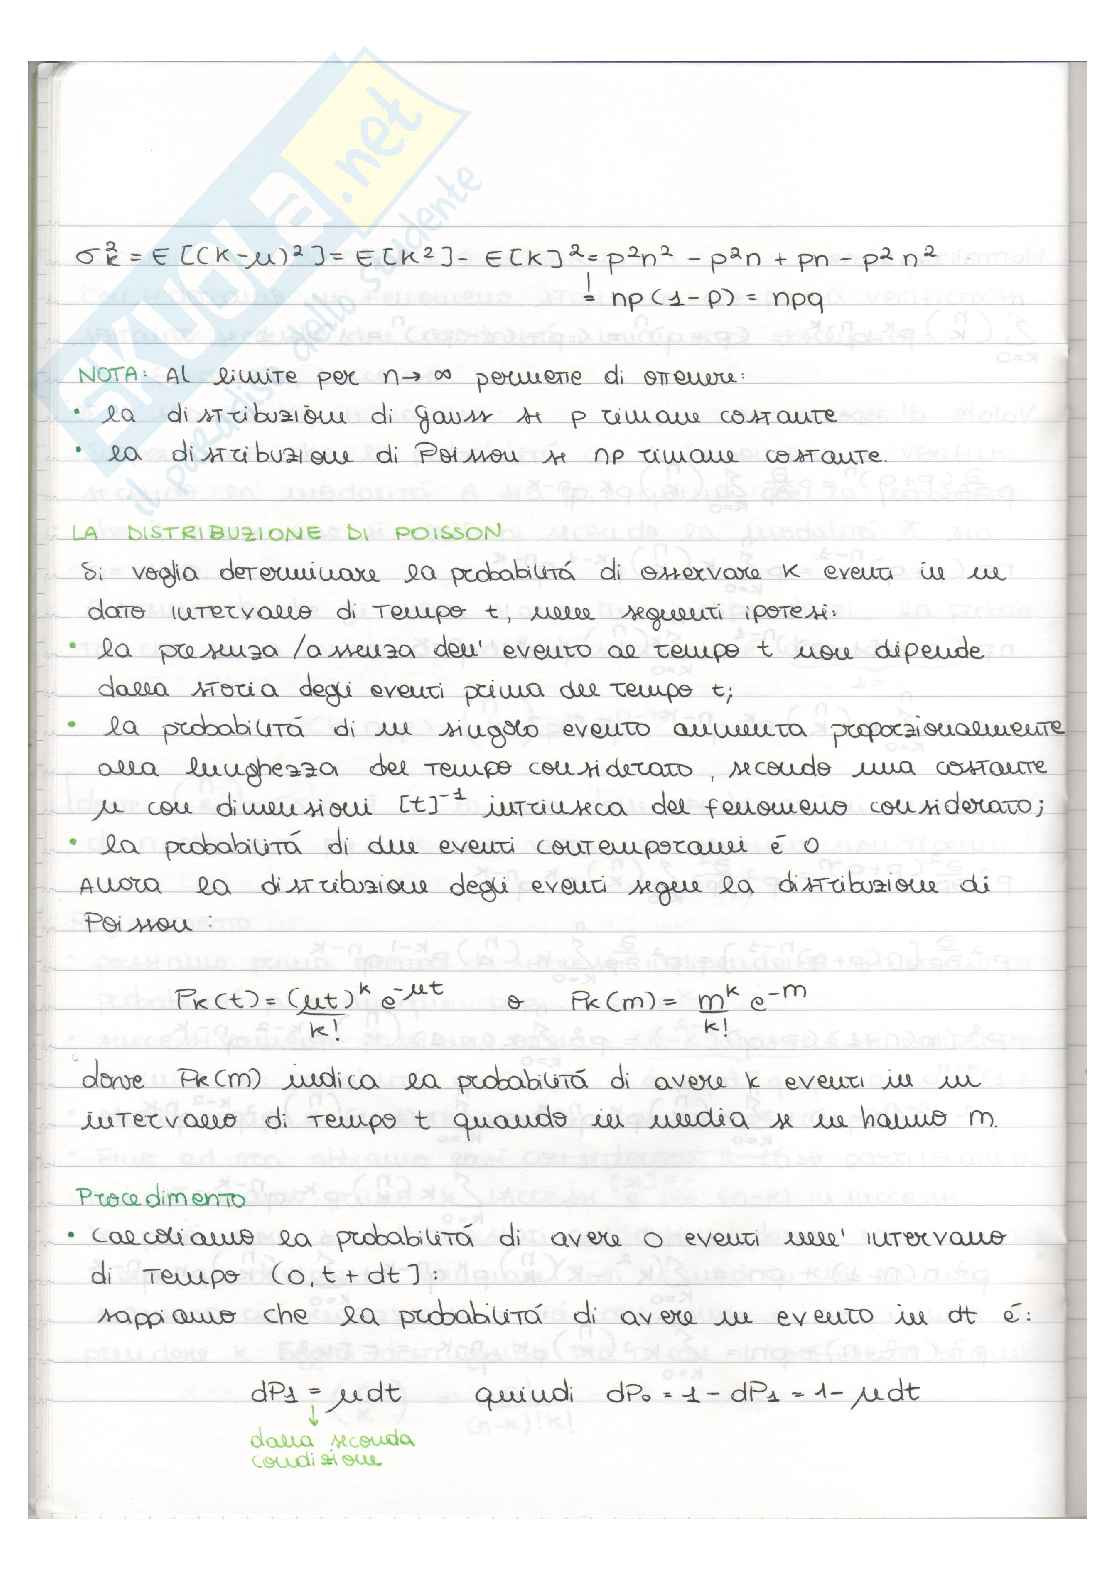 SKUOLA.net
il paradiso dello studente
σ²ₖ = E [(K-μ)²] = E[K²] - E[K]² = p²n² - p²n + pn - p²n²
= np(1-p) = npq
NOTA: Al limite per n→∞ permette di ottenere:
• la distribuzione di Gauss se p rimane costante
• la distribuzione di Poisson se np rimane costante.
LA DISTRIBUZIONE DI POISSON
Si voglia determinare la probabilitá di osservare K eventi in un
dato intervallo di tempo t, nelle seguenti ipotesi:
• la presenza /assenza dell' evento al tempo t non dipende
dalla storia degli eventi prima del tempo t;
• la probabilitá di un singolo evento aumenta proporzionalmente
alla lunghezza del tempo considerato, secondo una costante
μ con dimensioni [t]⁻¹ intrinseca del fenomeno considerato;
• la probabilitá di due eventi contemporanei é 0
Allora la distribuzione degli eventi segue la distribuzione di
Poisson:
Pₖ(t) = (μt)ᵏ/k! e^-μt o Pₖ(m) = mᵏ/k! e^-m
dove Pₖ(m) indica la probabilitá di avere k eventi in un
intervallo di tempo t quando in media se ne hanno m.
Procedimento
• Calcoliamo la probabilitá di avere 0 eventi nell' intervallo
di tempo (0, t + dt]:
sappiamo che la probabilitá di avere un evento in dt é:
dP₁ = μdt quindi dP₀ = 1 - dP₁ = 1 - μdt
↓
dalla seconda
condizione